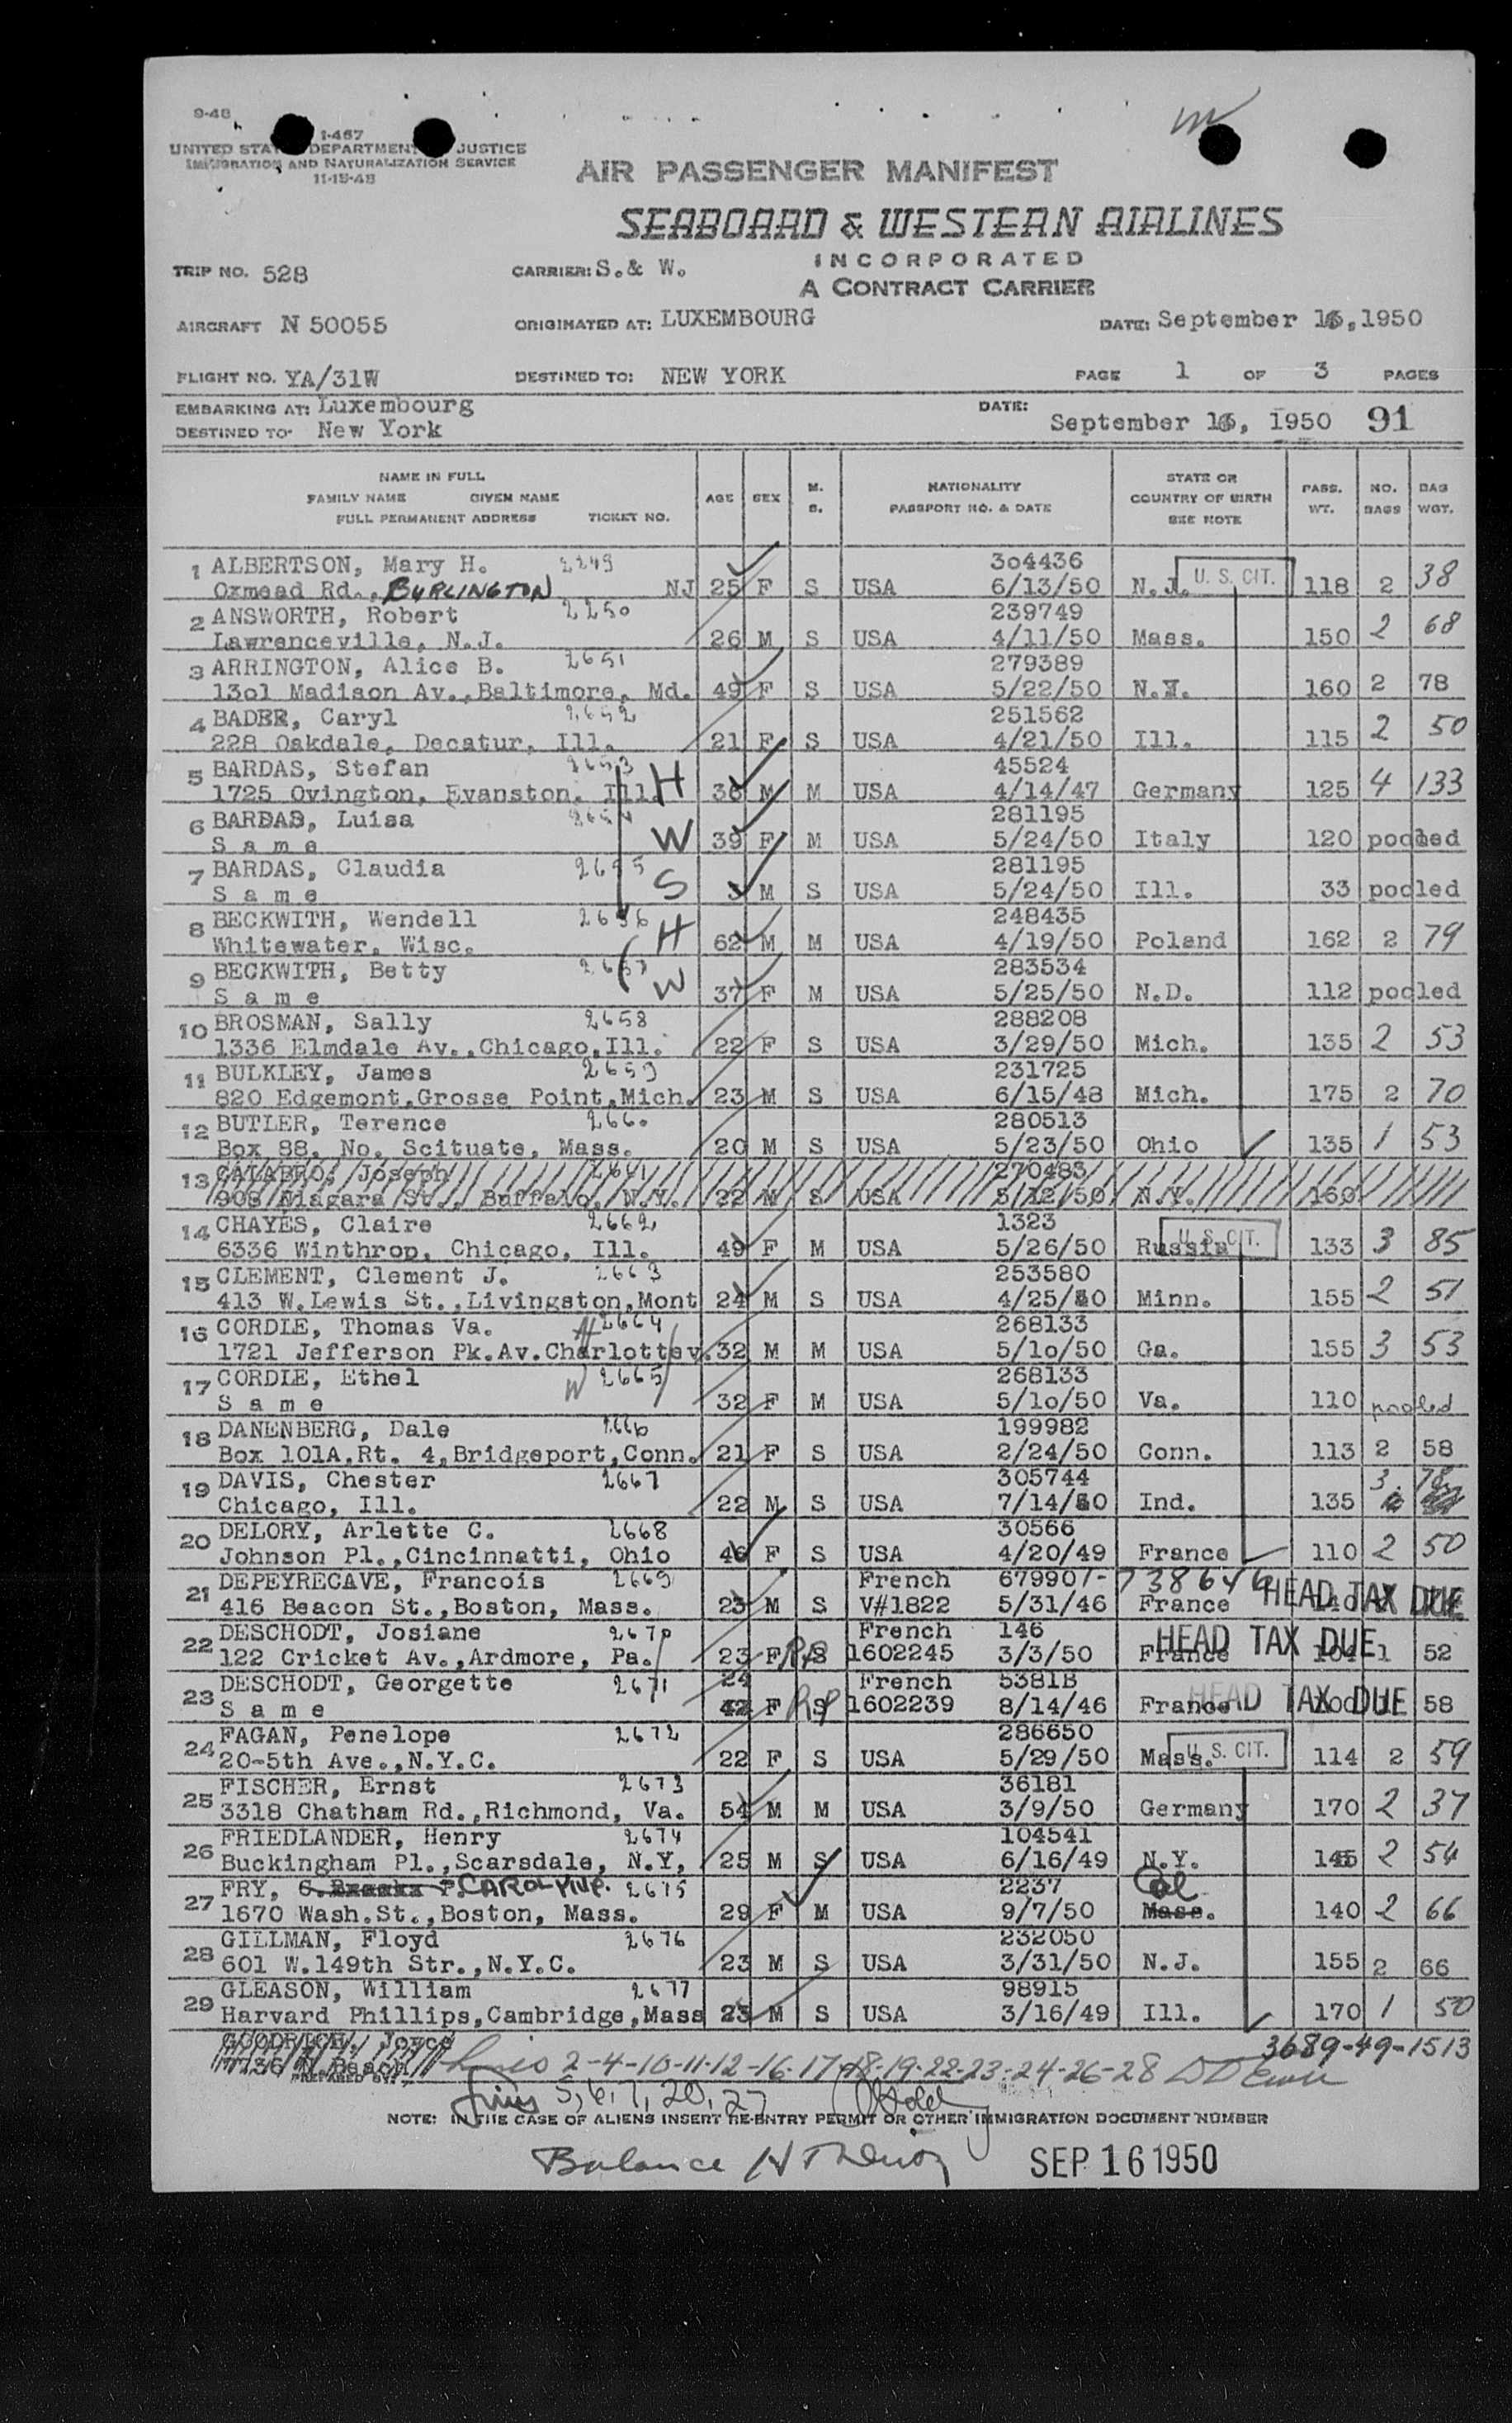 9-48
I-467
UNITED STATES DEPARTMENT OF JUSTICE
IMMIGRATION AND NATURALIZATION SERVICE
11-15-48
AIR PASSENGER MANIFEST
SEABOARD & WESTERN AIRLINES
INCORPORATED
A CONTRACT CARRIER
TRIP NO. 528 CARRIER: S.& W.
AIRCRAFT N 50055 ORIGINATED AT: LUXEMBOURG DATE: September 16, 1950
FLIGHT NO. YA/31W DESTINED TO: NEW YORK PAGE 1 OF 3 PAGES
EMBARKING AT: Luxembourg DATE: September 16, 1950 91
DESTINED TO: New York
NAME IN FULL
FAMILY NAME GIVEN NAME
FULL PERMANENT ADDRESS TICKET NO.
AGE SEX M. S. NATIONALITY PASSPORT NO. & DATE STATE OR COUNTRY OF BIRTH SEE NOTE PASS. WT. NO. BAGS BAG WGT.
1 ALBERTSON, Mary H. 2249 304436 U. S. CIT.
Oxmead Rd., BURLINGTON NJ 25 F S USA 6/13/50 N.J. 118 2 38
2 ANSWORTH, Robert 2250 239749
Lawrenceville, N.J. 26 M S USA 4/11/50 Mass. 150 2 68
3 ARRINGTON, Alice B. 2651 279389
1301 Madison Av., Baltimore, Md. 49 F S USA 5/22/50 160 2 78
4 BADER, Caryl 2652 251562
228 Oakdale, Decatur, Ill. 21 F S USA 4/21/50 Ill. 115 2 50
5 BARDAS, Stefan 2653 H 45524
1725 Ovington, Evanston, Ill. 36 M M USA 4/14/47 Germany 125 4 133
6 BARDAS, Luisa 2654 W 281195
S a m e 39 F M USA 5/24/50 Italy 120 pooled
7 BARDAS, Claudia 2655 S 281195
S a m e M S USA 5/24/50 Ill. 33 pooled
8 BECKWITH, Wendell 2656 H 248435
Whitewater, Wisc. 62 M M USA 4/19/50 Poland 162 2 79
9 BECKWITH, Betty 2657 W 283534
S a m e 37 F M USA 5/25/50 N.D. 112 pooled
10 BROSMAN, Sally 2658 288208
1336 Elmdale Av., Chicago, Ill. 22 F S USA 3/29/50 Mich. 135 2 53
11 BULKLEY, James 2659 231725
820 Edgemont, Grosse Point, Mich. 23 M S USA 6/15/48 Mich. 175 2 70
12 BUTLER, Terence 2660 280513
Box 88, No. Scituate, Mass. 20 M S USA 5/23/50 Ohio 135 1 53
13 CALABRO, Joseph 2661 270483
908 Niagara St., Buffalo, N.Y. 22 M S USA 5/12/50 N.Y. 160
14 CHAYES, Claire 2662 1323 U. S. CIT.
6336 Winthrop, Chicago, Ill. 49 F M USA 5/26/50 Russia 133 3 85
15 CLEMENT, Clement J. 2663 253580
413 W.Lewis St., Livingston, Mont 24 M S USA 4/25/50 Minn. 155 2 51
16 CORDLE, Thomas Va. H 2664 268133
1721 Jefferson Pk.Av.Charlottev. 32 M M USA 5/10/50 Ga. 155 3 53
17 CORDLE, Ethel W 2665 268133
S a m e 32 F M USA 5/10/50 Va. 110 pooled
18 DANENBERG, Dale 2666 199982
Box 101A, Rt. 4, Bridgeport, Conn. 21 F S USA 2/24/50 Conn. 113 2 58
19 DAVIS, Chester 2667 305744 3 78
Chicago, Ill. 22 M S USA 7/14/50 Ind. 135
20 DELORY, Arlette C. 2668 30566
Johnson Pl., Cincinnatti, Ohio 46 F S USA 4/20/49 France 110 2 50
21 DEPEYRECAVE, Francois 2669 French 679907- 738646 HEAD TAX DUE
416 Beacon St., Boston, Mass. 23 M S V#1822 5/31/46 France
22 DESCHODT, Josiane 2670 French 146 HEAD TAX DUE
122 Cricket Av., Ardmore, Pa. 23 F RP S 1602245 3/3/50 France 104 1 52
23 DESCHODT, Georgette 2671 24 French 5381B HEAD TAX DUE
S a m e 42 F RP S 1602239 8/14/46 France 58
24 FAGAN, Penelope 2672 286650 U. S. CIT.
20-5th Ave., N.Y.C. 22 F S USA 5/29/50 Mass. 114 2 59
25 FISCHER, Ernst 2673 36181
3318 Chatham Rd., Richmond, Va. 54 M M USA 3/9/50 Germany 170 2 37
26 FRIEDLANDER, Henry 2674 104541
Buckingham Pl., Scarsdale, N.Y. 25 M S USA 6/16/49 N.Y. 145 2 54
27 FRY, CAROLYN P. 2675 2237 Cal
1670 Wash.St., Boston, Mass. 29 F M USA 9/7/50 Mass. 140 2 66
28 GILLMAN, Floyd 2676 232050
601 W.149th Str., N.Y.C. 23 M S USA 3/31/50 N.J. 155 2 66
29 GLEASON, William 2677 98915
Harvard Phillips, Cambridge, Mass 23 M S USA 3/16/49 Ill. 170 1 50
GOODRICH, Joyce 3689-49-1513
PREPARED BY: Lines 2-4-10-11-12-16-17-18-19-22-23-24-26-28
Lines 5, 6, 7, 20, 27
NOTE: IN THE CASE OF ALIENS INSERT RE-ENTRY PERMIT OR OTHER IMMIGRATION DOCUMENT NUMBER
Balance SEP 16 1950